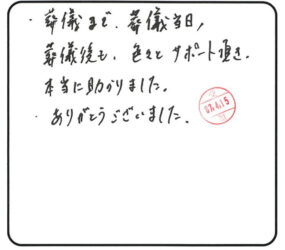 ・葬儀まで、葬儀当日、
葬儀後も、色々とサポート頂き、
本当に助かりました。
・ありがとうございました。